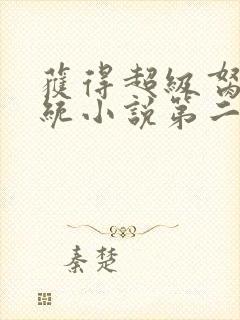 獲得超級
統小說第二
秦楚